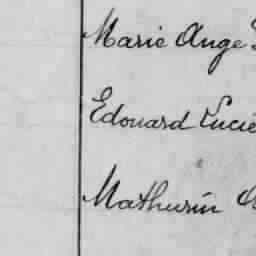 Marie Ange
Edouard Lucie
Mathurin